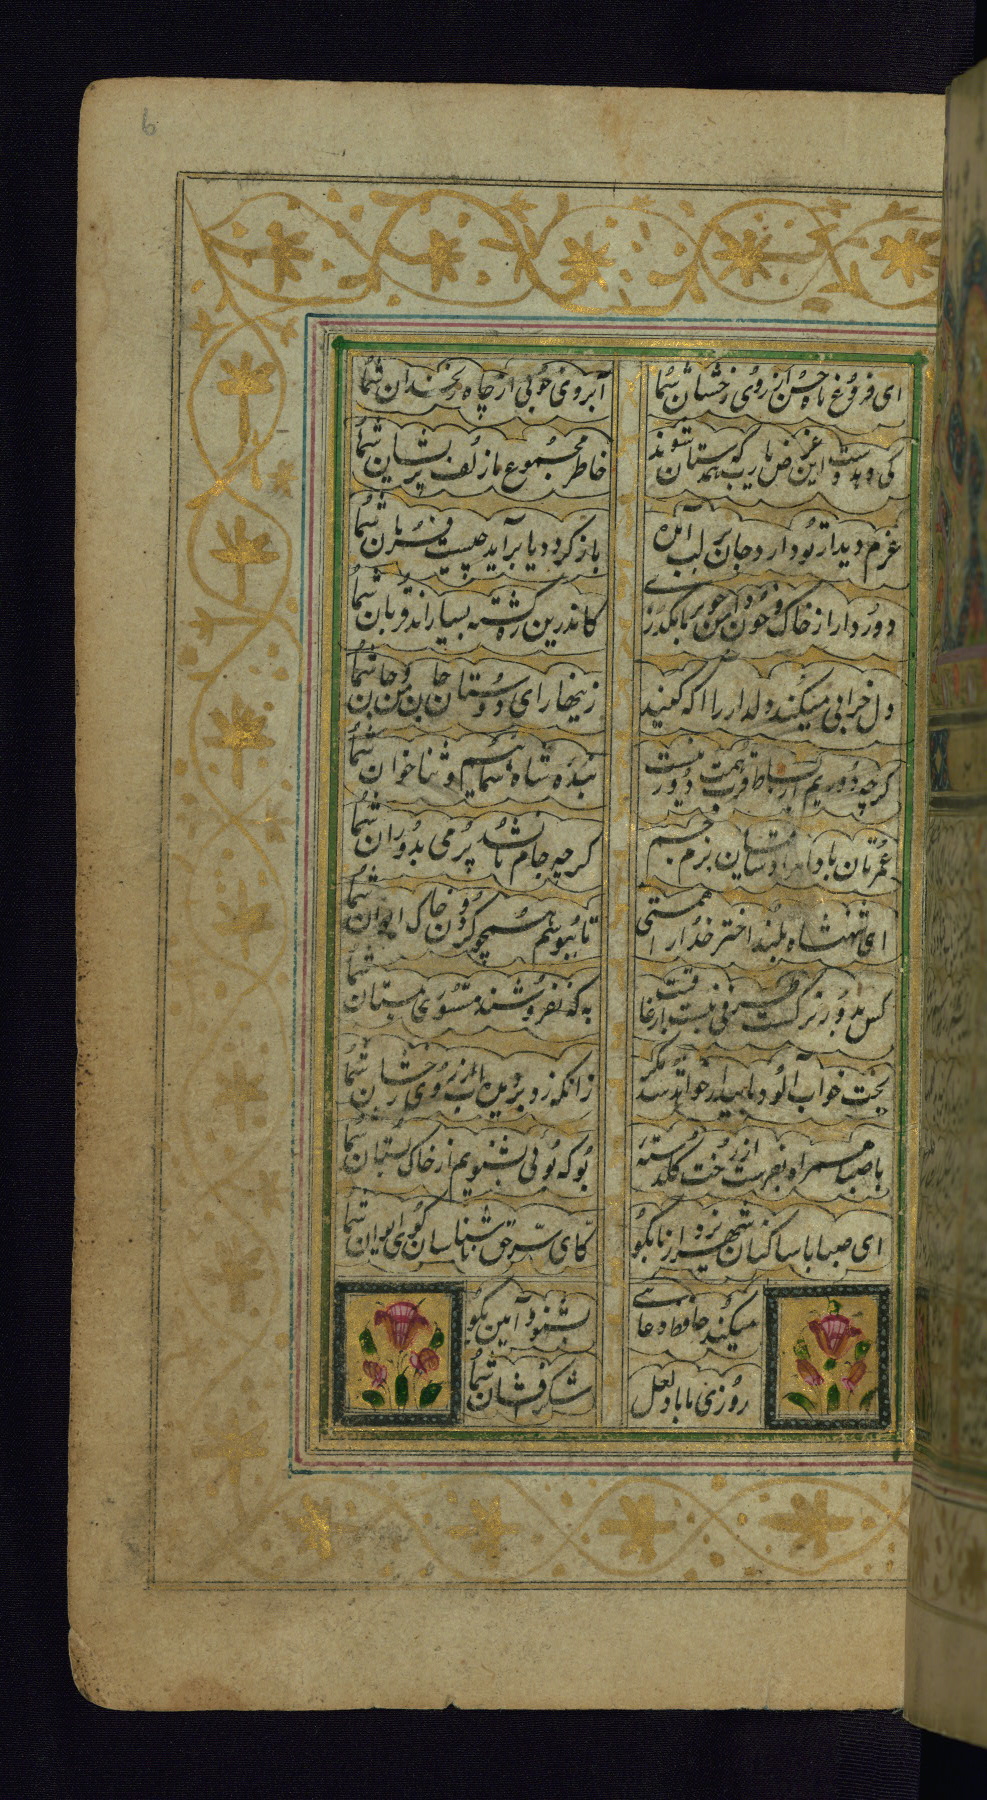 6
ای فروغ ماه حسن از روی رخشان شما
آبروی خوبی از چاه زنخدان شما
کی دهد دست این غرض یارب که همدستان شوند
خاطر مجموع ما زلف پریشان شما
عزم دیدار تو دارد جان بر لب آمده
باز گردد یا برآید چیست فرمان شما
دور دار از خاک و خون دامن چو بر ما بگذری
کاندرین ره کشته بسیارند قربان شما
دل خرابی میکند دلدار را آگه کنید
زینهار ای دوستان جان من و جان شما
گرچه دوریم از بساط قرب همت دور نیست
بنده شاه شماییم و ثناخوان شما
عمرتان باد و مراد ای ساقیان بزم جم
گرچه جام ما نشد پر می بدوران شما
ای شهنشاه بلند اختر خدا را همتی
تا ببوسم همچو گردون خاک ایوان شما
کس بدور نرگست طرفی نبست از عافیت
به که نفروشند مستوری بمستان شما
بخت خواب آلود ما بیدار خواهد شد مگر
زانکه زد بر دیده آب از روی رخشان شما
با صبا همراه بفرست از رخت گلدسته
بو که بوئی بشنویم از خاک بستان شما
ای صبا با ساکنان شهر یزد از ما بگو
کای سر حق ناشناسان گوی ایوان شما
میکند حافظ دعائی
بشنو و آمین بگو
روزی ما باد لعل
شکرفشان شما